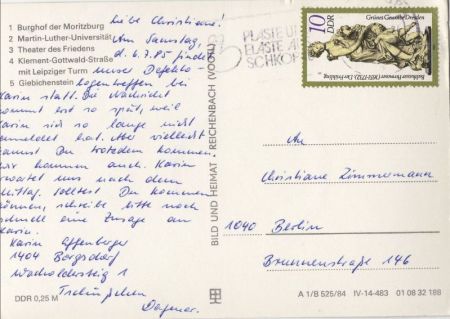 1 Burghof der Moritzburg
2 Martin-Luther-Universität
3 Theater des Friedens
4 Klement-Gottwald-Straße
mit Leipziger Turm
5 Giebichenstein
liebe Christiane!
Am Samstag,
d. 6.7.85 findet
unser
treffen bei
Karin statt. Die Nachricht
kommt erst so spät, weil
Karin sich so lange nicht
gemeldet hat. Aber vielleicht
kannst Du trotzdem kommen
wir kommen auch. Karin
erwartet uns nach dem
Mittag. Solltest Du kommen
können, schreibe bitte noch
schnell eine Zusage an
Karin.
Karin Effenberger
1404 Borgsdorf
1
Tschüßchen
Dagmar.
DDR 0,25 M
BILD UND HEIMAT · REICHENBACH (VOGTL)
PLASTE U
ELASTE A
SCHKOP
10
DDR
Grünes Gewölbe Dresden
Balthasar Permoser 1651-1732, Der Frühling
An
Christiane Zimmermann
1040 Berlin
Brunnenstraße 146
A 1/B 525/84 IV-14-483 01 08 32 188